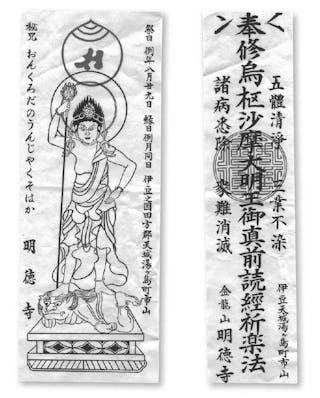 祭日 例年八月廿九日 縁日 例月同日 伊豆之国田方郡天城湯ヶ島町市山
秘咒 おんくろだのうんじゃくそはか 明徳寺
五體清浄 三業不染 伊豆天城湯ヶ島町市山
奉修烏枢沙摩大明王御真前読經祈楽法
諸病悉除 衆難消滅 金龍山 明徳寺